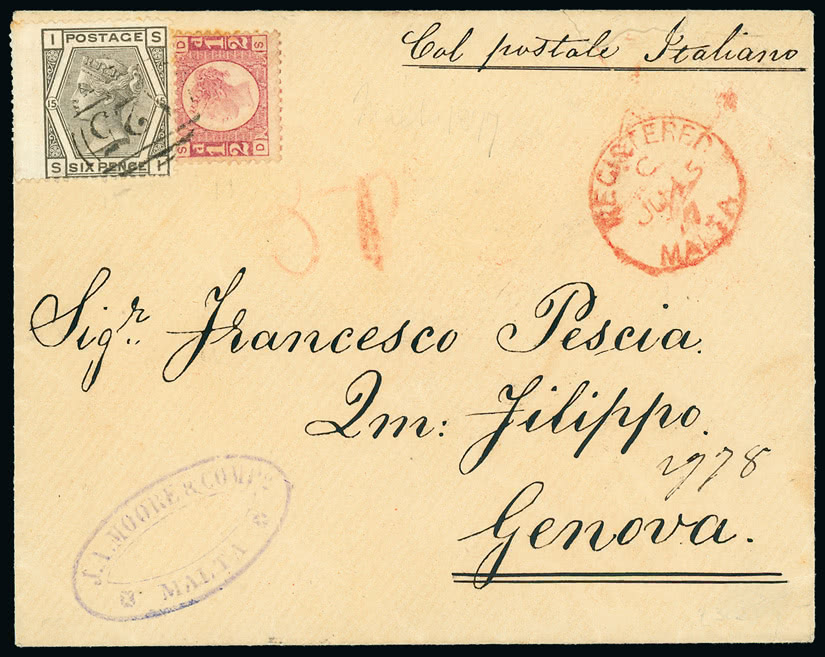 I POSTAGE S
15
S SIX PENCE I
D 1/2 d S
S 1/2 D
Col postale Italiano
REGISTERED
MALTA
Sigr. Francesco Pescia.
Qm: Filippo.
1978
Genova.
J.A. MOORE & COMPY.
MALTA